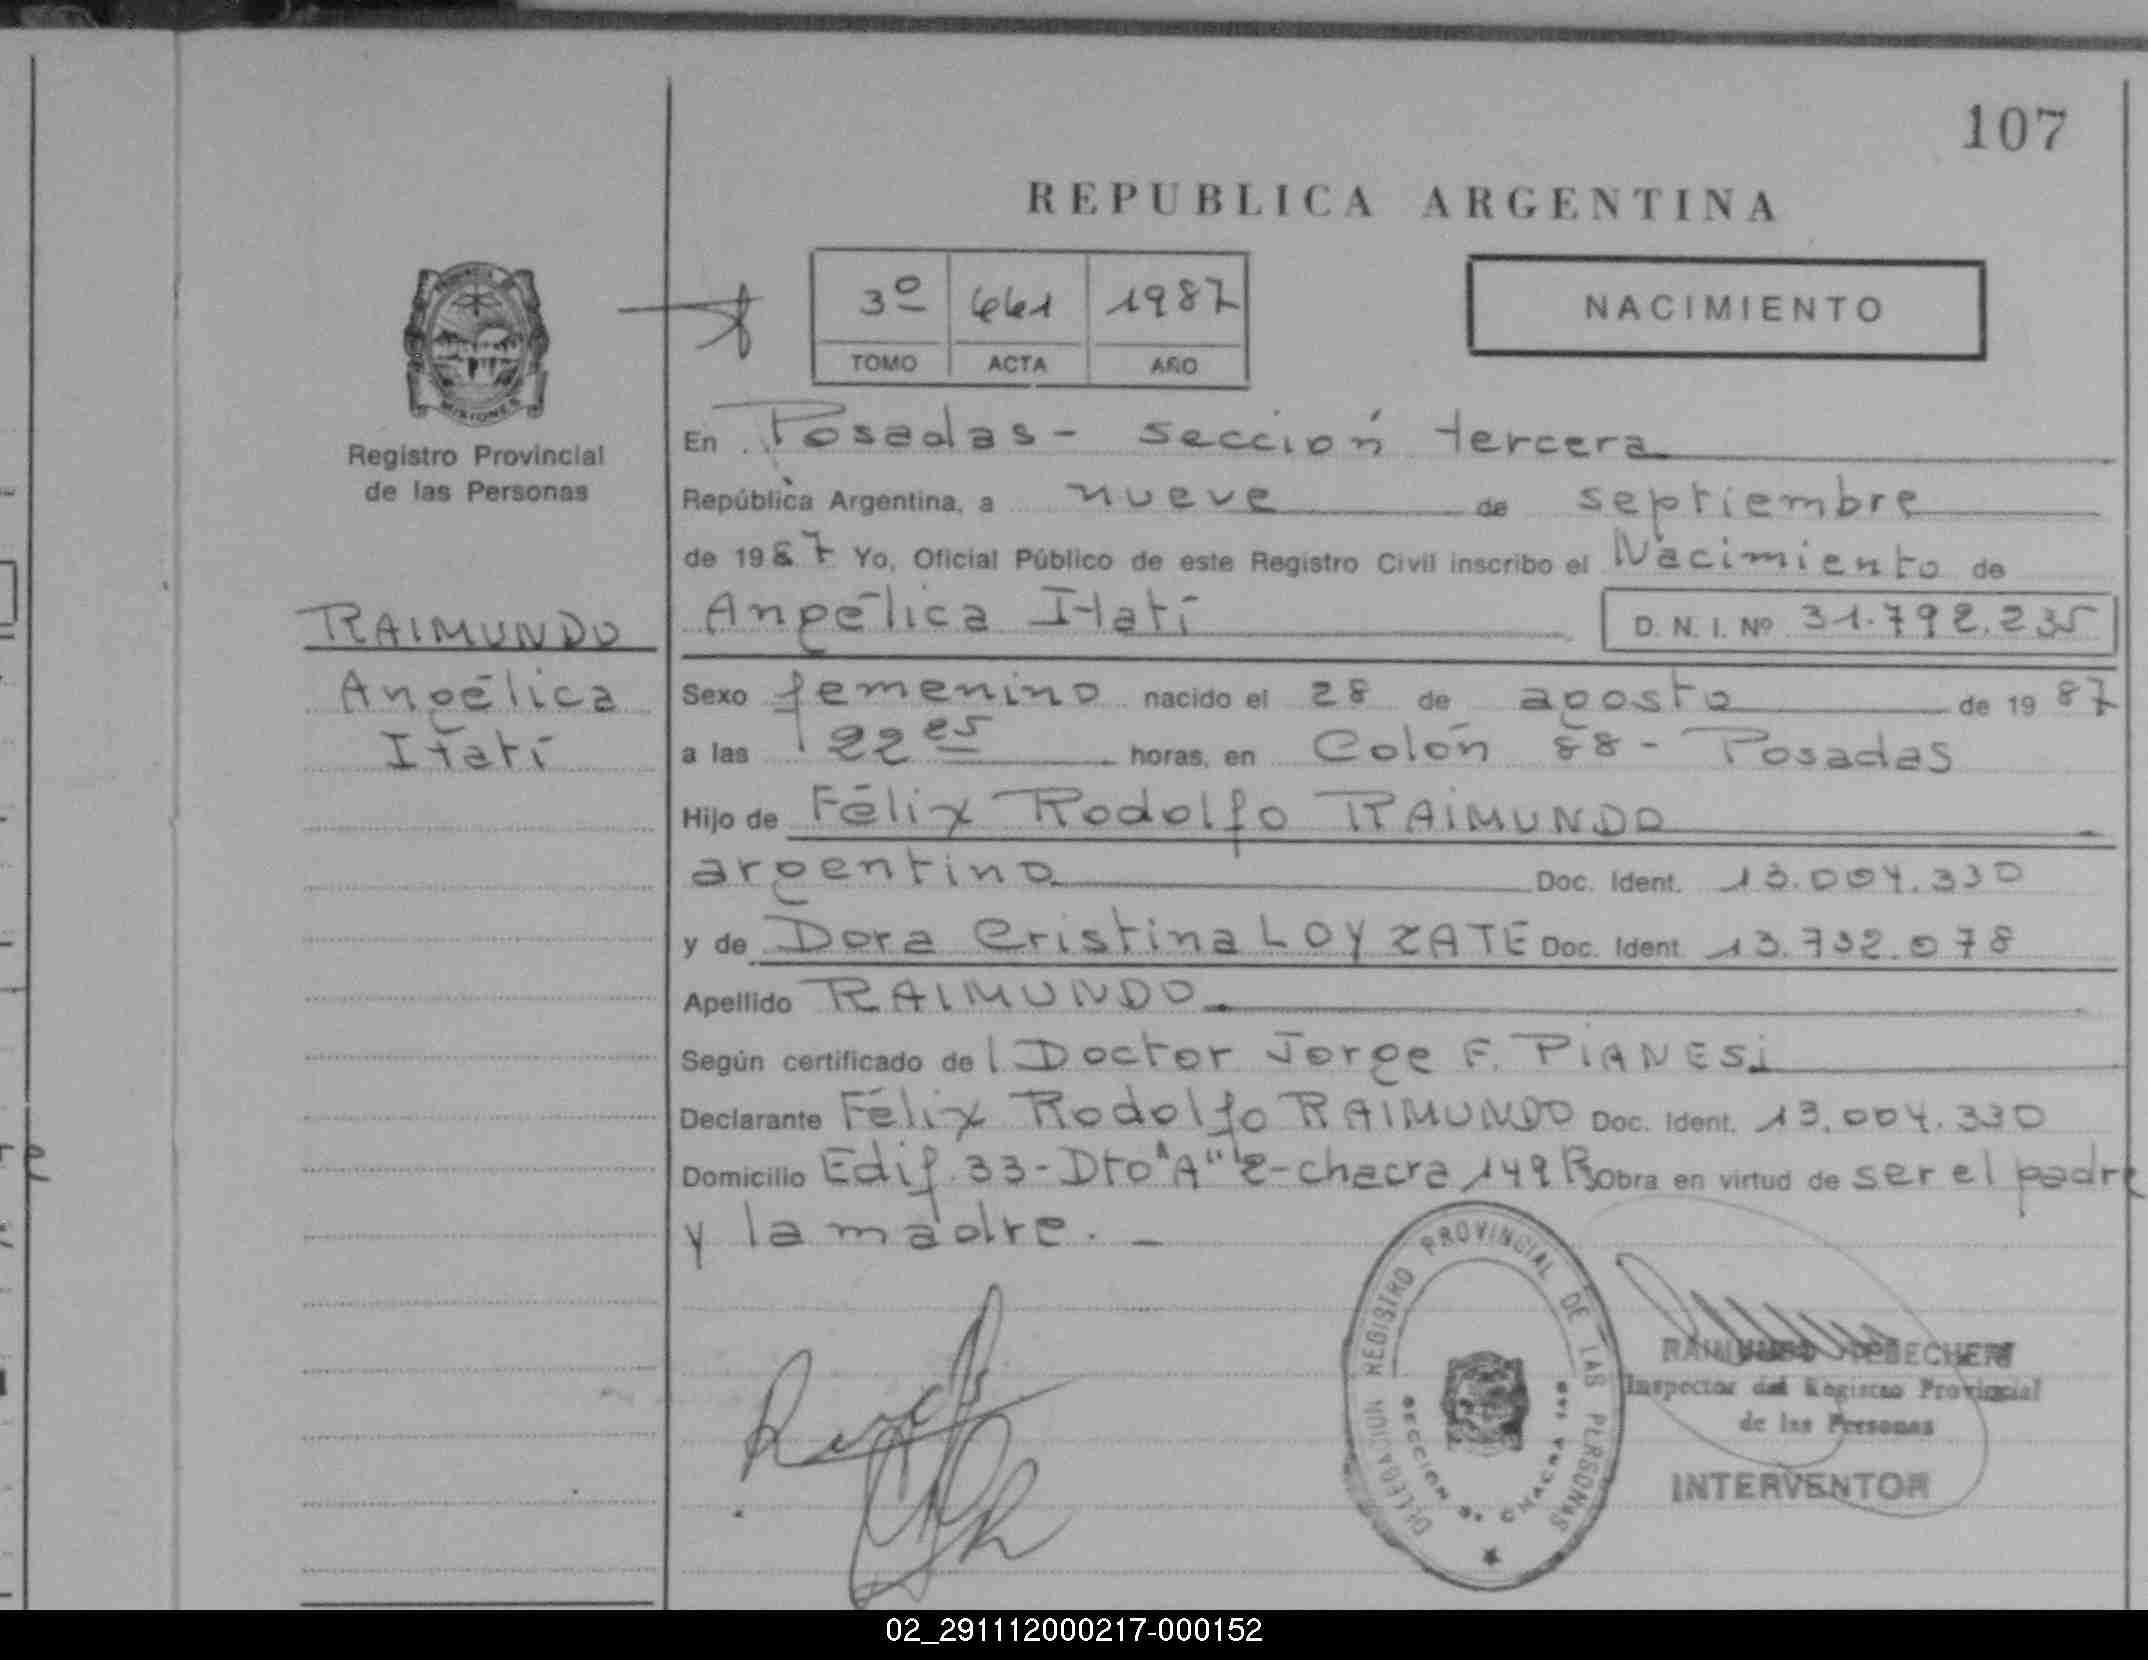 107
REPUBLICA ARGENTINA
3º 661 1987
TOMO ACTA AÑO
NACIMIENTO
MISIONES
Registro Provincial
de las Personas
RAIMUNDO
Angélica
Itatí
En Posadas - sección tercera
República Argentina, a nueve de septiembre
de 1987 Yo, Oficial Público de este Registro Civil inscribo el Nacimiento de
Angélica Itatí D. N. I. Nº 31.792.235
Sexo femenino nacido el 28 de agosto de 1987
a las 22 es horas, en Colón 88 - Posadas
Hijo de Félix Rodolfo RAIMUNDO
argentino Doc. Ident. 13.004.330
y de Dora Cristina LOYZATE Doc. Ident. 13.732.078
Apellido RAIMUNDO
Según certificado del Doctor Jorge F. PIANESI
Declarante Félix Rodolfo RAIMUNDO Doc. Ident. 13.004.330
Domicilio Edif. 33 - Dto "A" - chacra 149 Obra en virtud de ser el padre
y la madre. -
DELEGACION REGISTRO PROVINCIAL DE LAS PERSONAS
SECCION 3a CHACRA 149
Inspector del Registro Provincial
de las Personas
INTERVENTOR
02_291112000217-000152